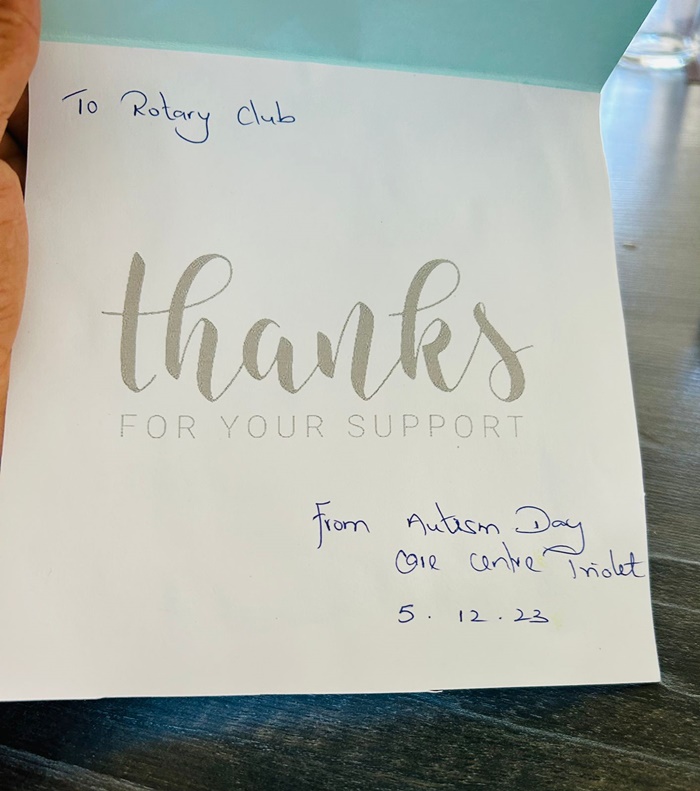 To Rotary Club
thanks
FOR YOUR SUPPORT
From Autism Day
Care Centre Triolet
5.12.23